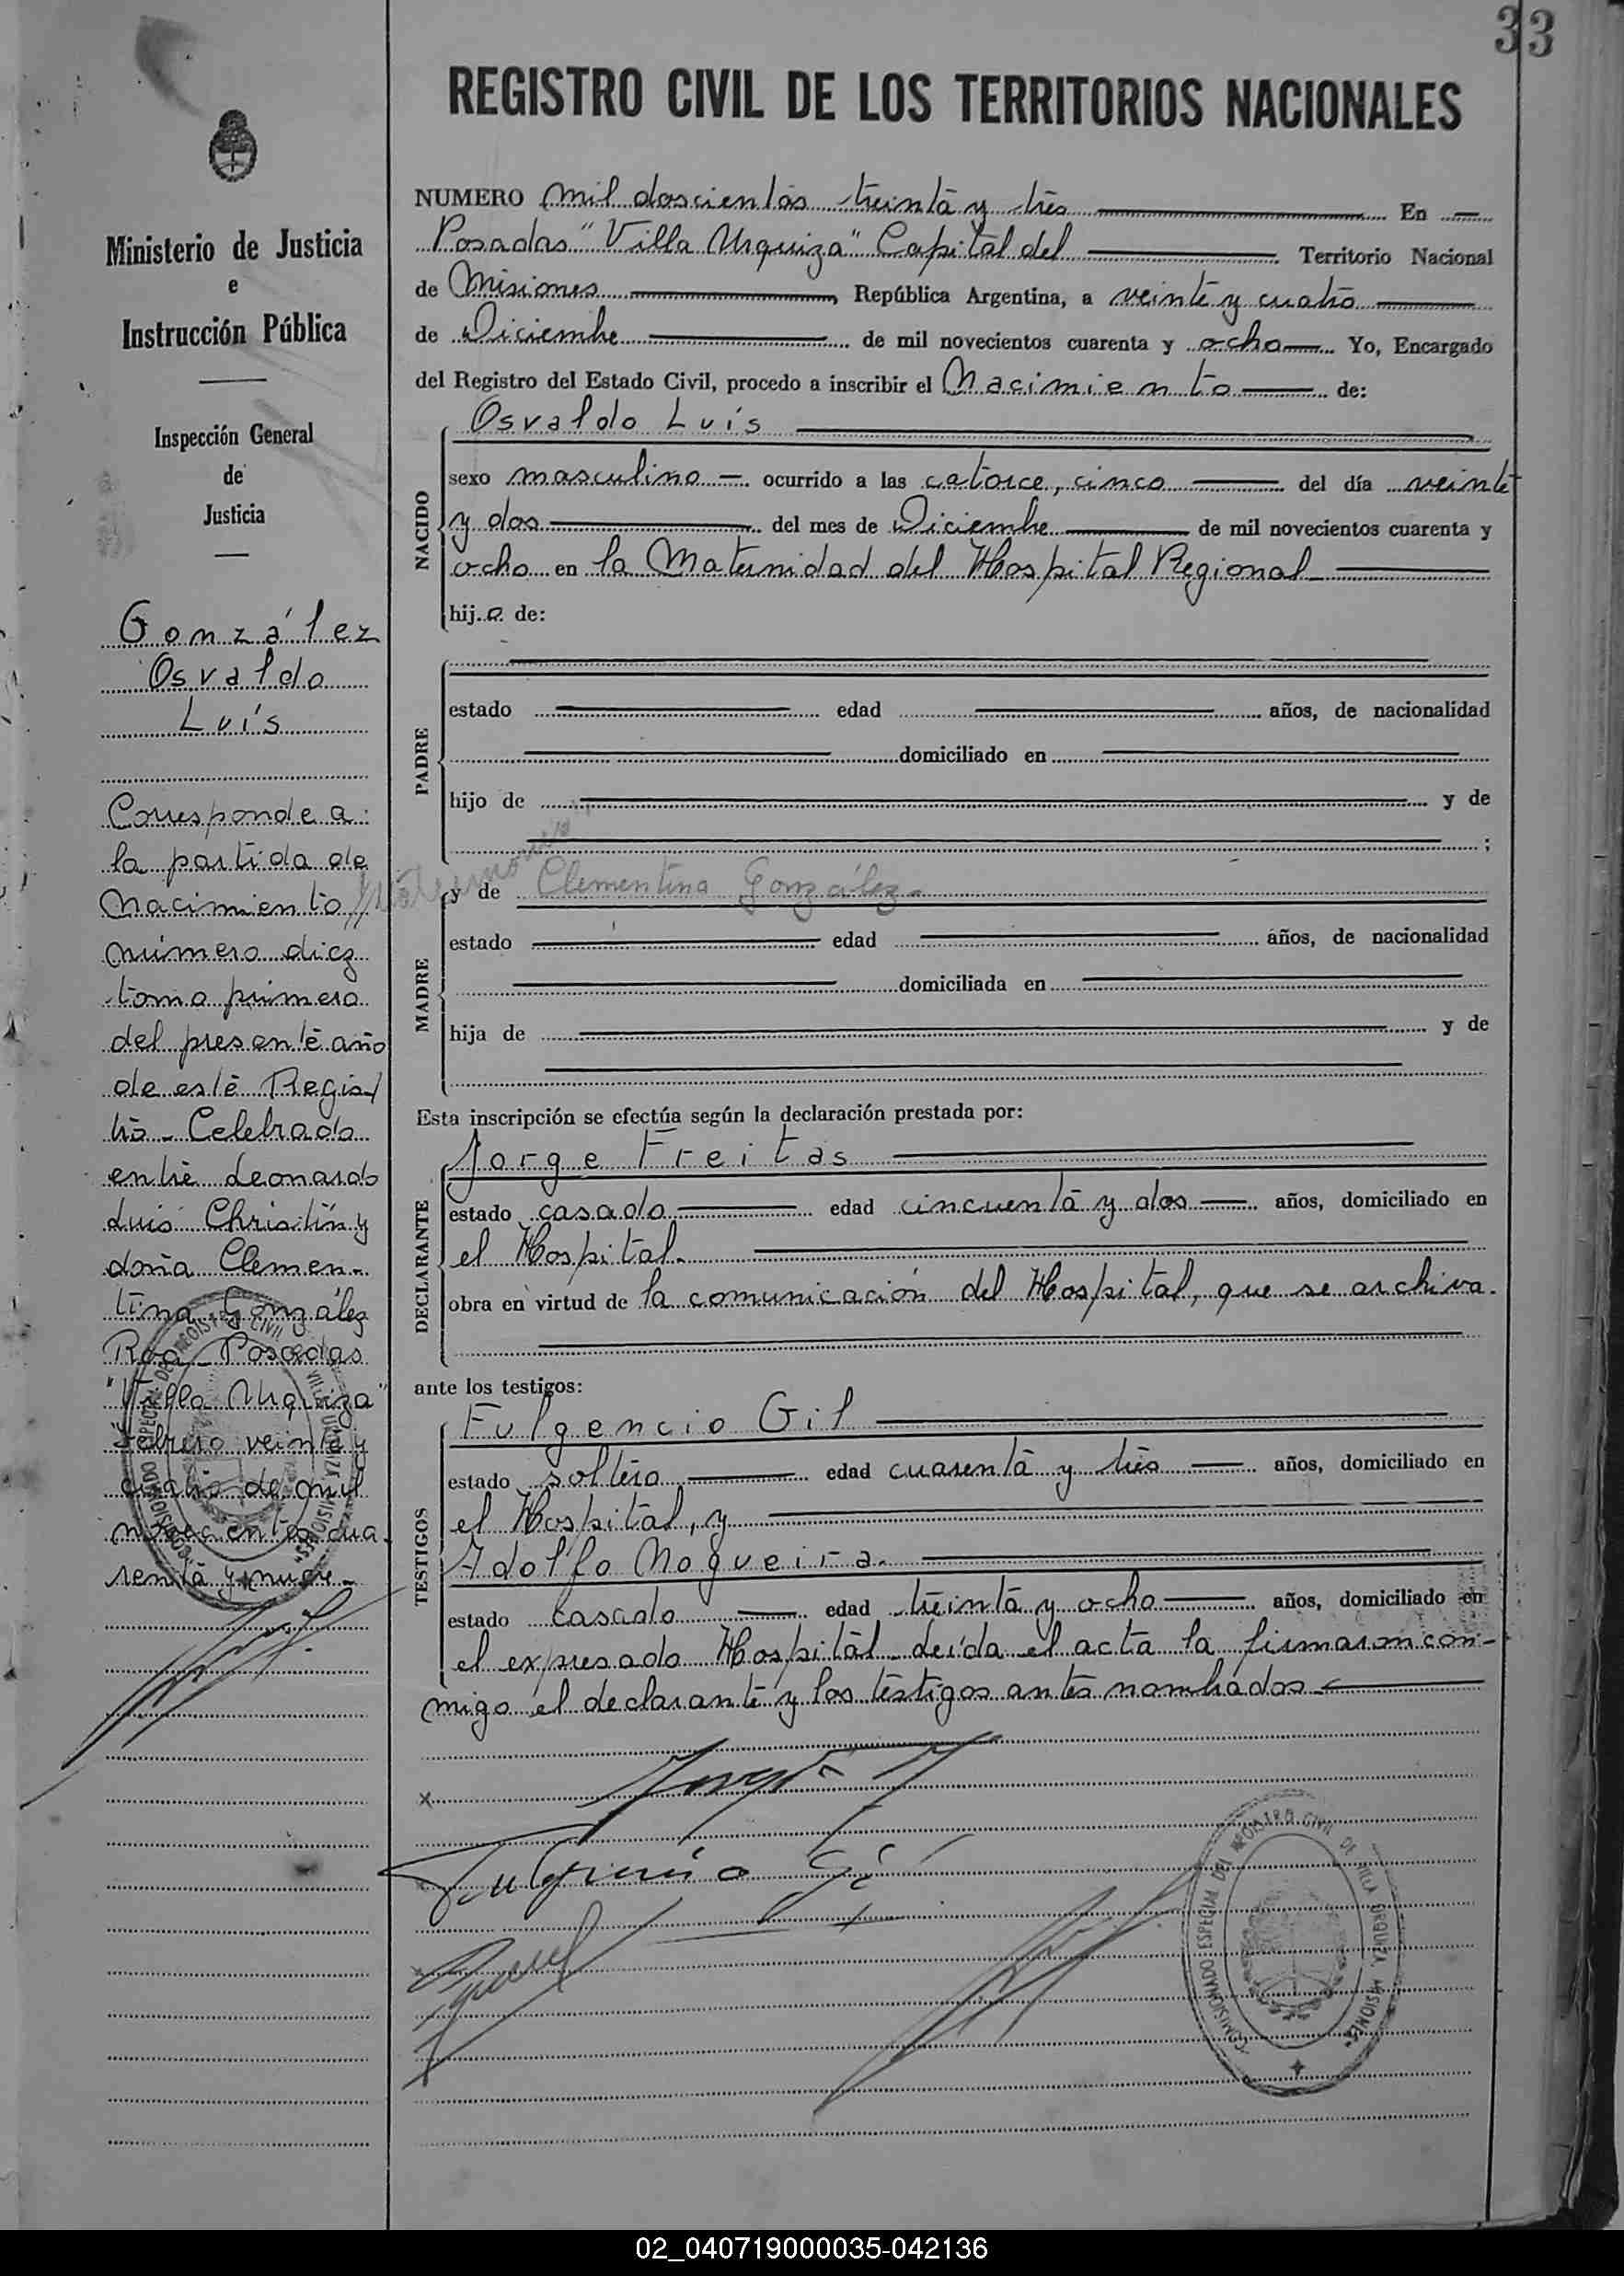 33
REGISTRO CIVIL DE LOS TERRITORIOS NACIONALES
Ministerio de Justicia
e
Instrucción Pública
Inspección General
de
Justicia
González
Osvaldo
Luís
Corresponde a:
la partida de
Nacimiento //
número diez
tomo primero
del presente año
de este Regis-
tro - Celebrado
entre Leonardo
Luis Christin y
doña Clemen-
tina González
Roa - Posadas
"Villa Urquiza"
Febrero veinte y
cuatro de mil
novecientos cua-
renta y nueve -
NUMERO mil doscientos treinta y tres En
Posadas "Villa Urquiza" Capital del Territorio Nacional
de Misiones, República Argentina, a veinte y cuatro
de Diciembre de mil novecientos cuarenta y ocho Yo, Encargado
del Registro del Estado Civil, procedo a inscribir el Nacimiento de:
Osvaldo Luís
NACIDO
sexo masculino ocurrido a las catorce, cinco del día veinte
y dos del mes de Diciembre de mil novecientos cuarenta y
ocho en la Maternidad del Hospital Regional
hijo de:
PADRE
estado edad años, de nacionalidad
domiciliado en
hijo de y de
;
Matrimonio
MADRE
y de Clementina González -
estado edad años, de nacionalidad
domiciliada en
hija de y de
Esta inscripción se efectúa según la declaración prestada por:
DECLARANTE
Jorge Freitas
estado casado edad cincuenta y dos años, domiciliado en
el Hospital.
obra en virtud de la comunicación del Hospital, que se archiva.
ante los testigos:
TESTIGOS
Fulgencio Gil
estado soltero edad cuarenta y tres años, domiciliado en
el Hospital, y
Adolfo Nogueira.
estado casado edad treinta y ocho años, domiciliado en
el expresado Hospital. Leída el acta la firmaron con-
migo el declarante y los testigos antes nombrados
x
Fulgencio Gil
COMISIONADO ESPECIAL DEL REGISTRO CIVIL DE VILLA URQUIZA MISIONES
COMISIONADO ESPECIAL DEL REGISTRO CIVIL VILLA URQUIZA "MISIONES"
02_040719000035-042136